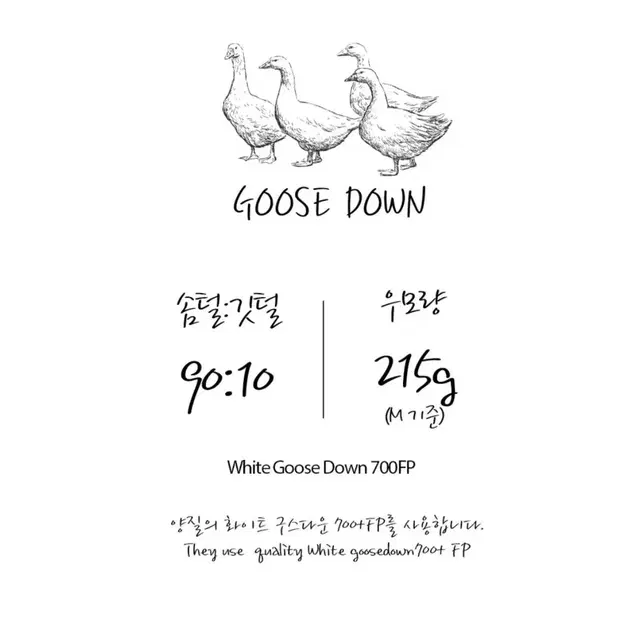 GOOSE DOWN
솜털:깃털
90:10
우모량
215g
(M기준)
White Goose Down 700FP
양질의 화이트 구스다운 700+FP를 사용합니다.
They use quality White goosedown700+ FP